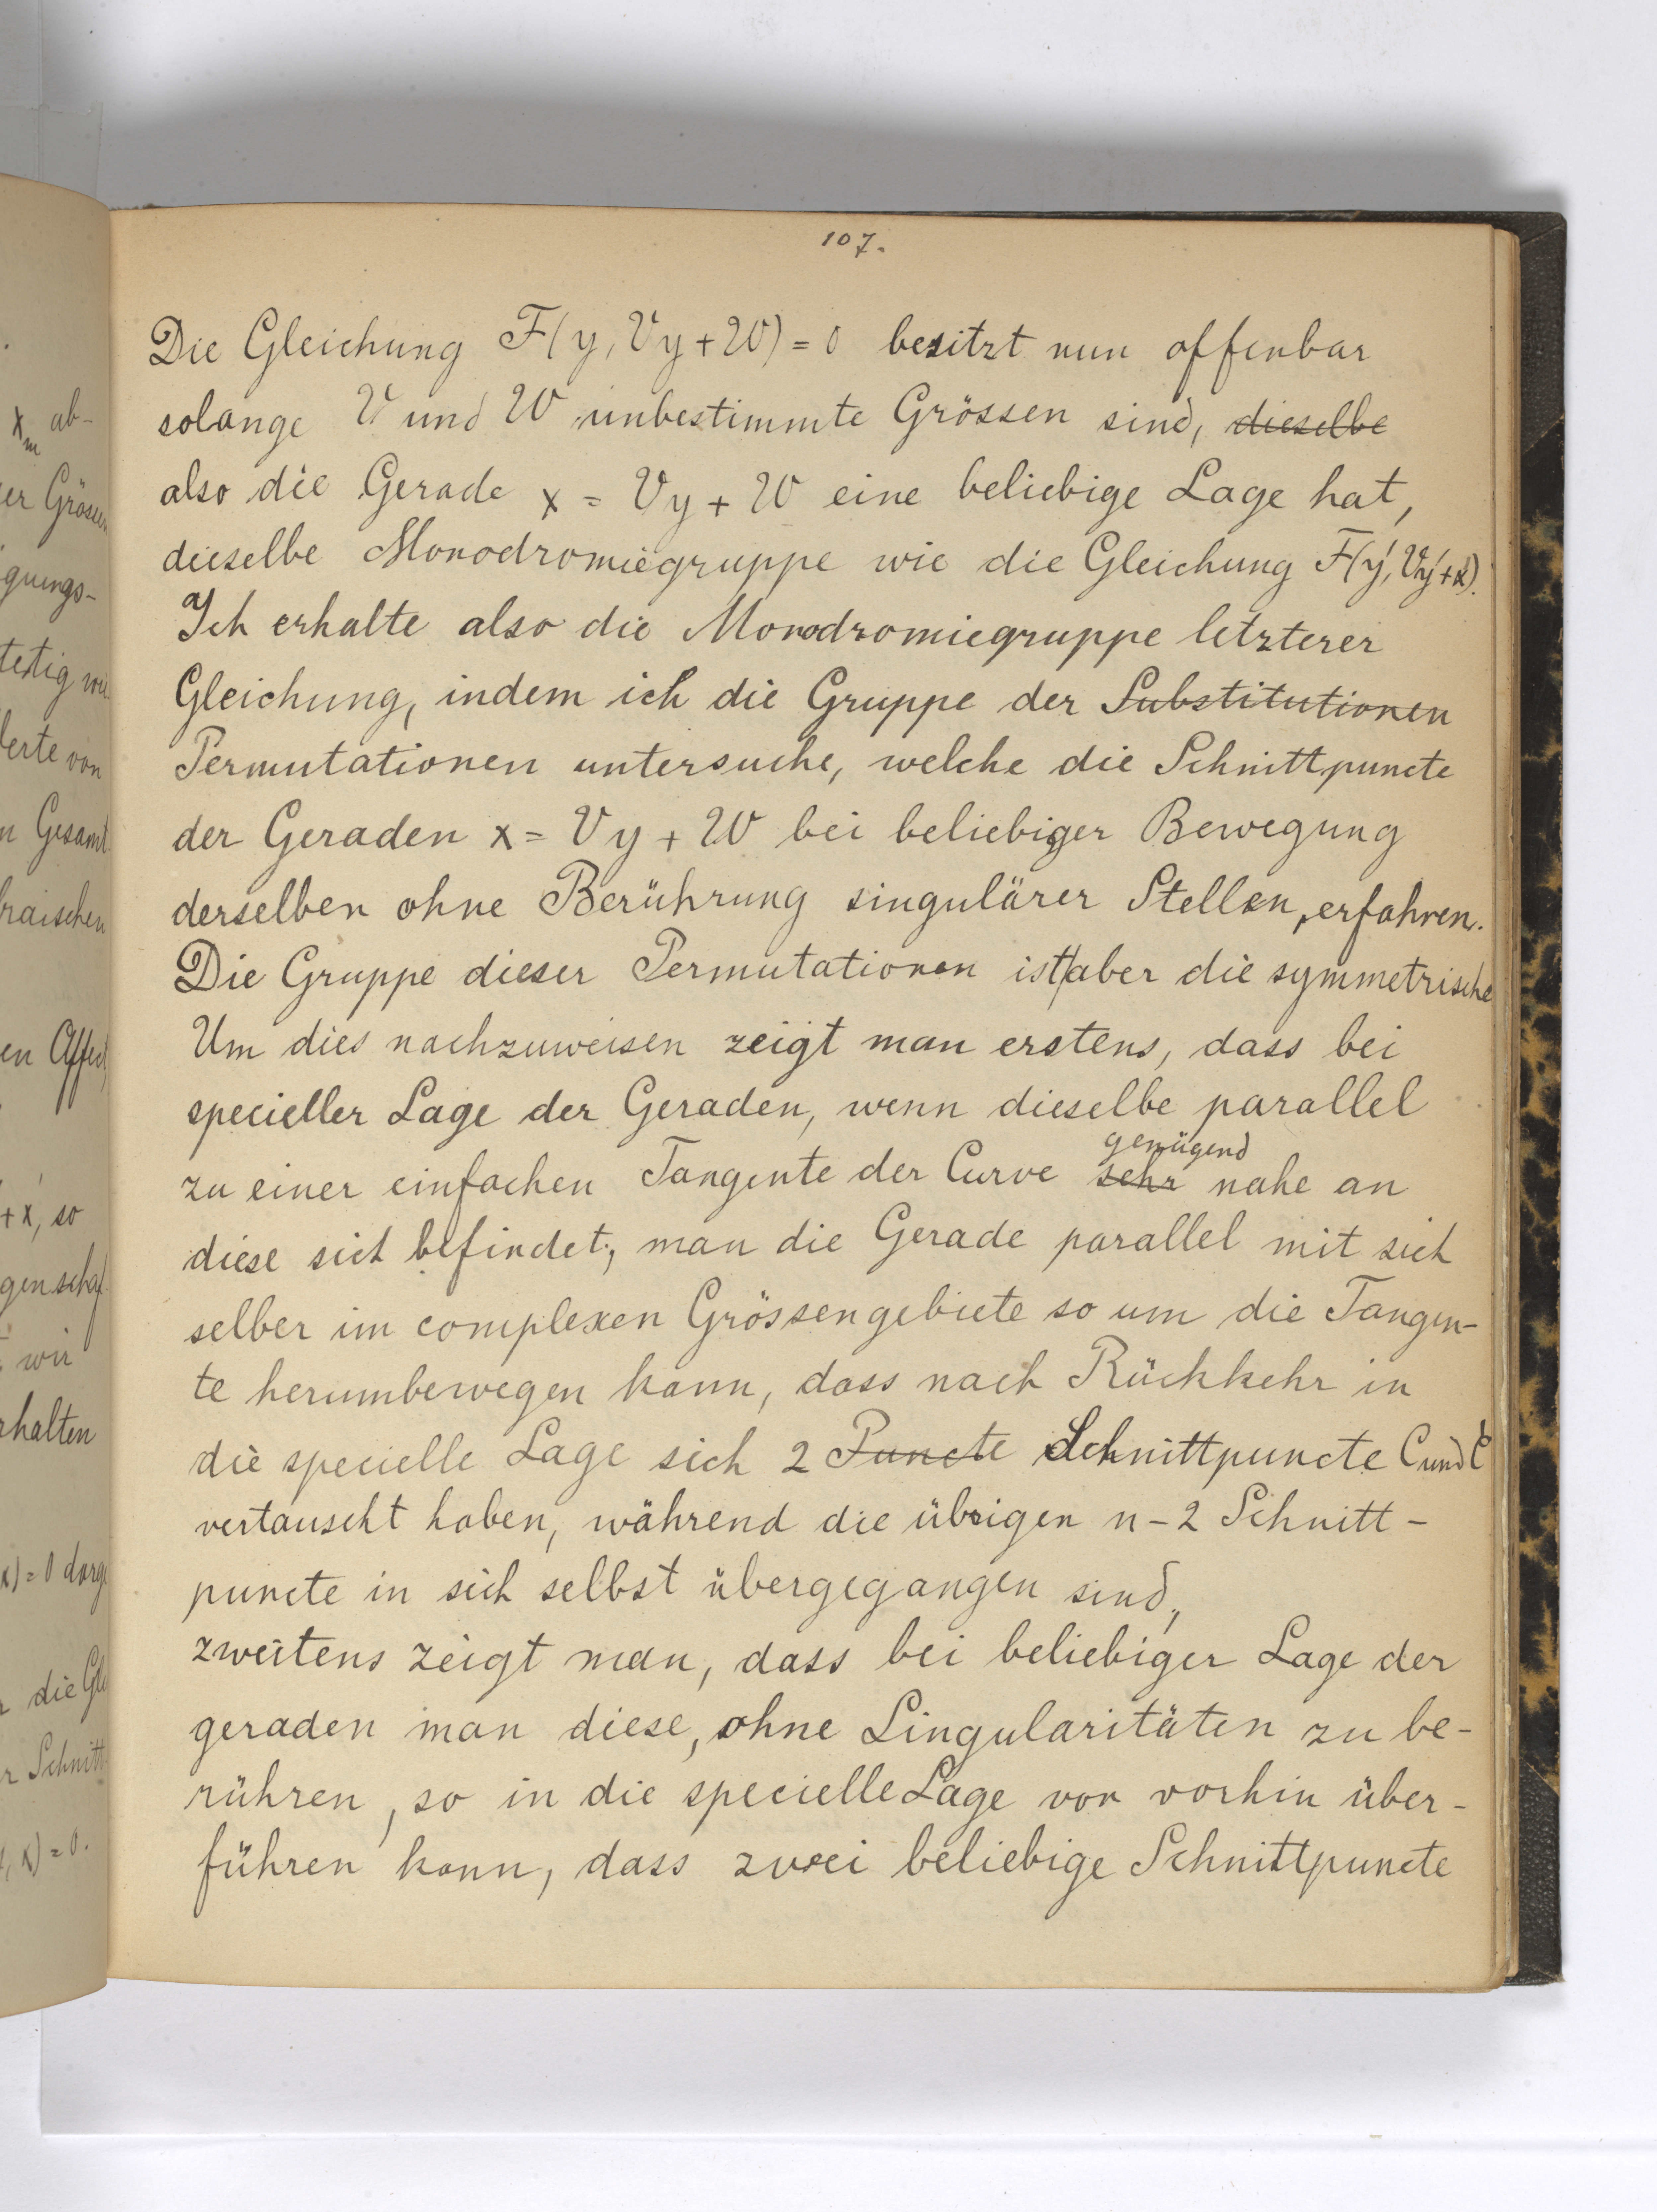 107.
Die Gleichung F(y, Vy + W) = 0 besitzt nun offenbar
solange V und W unbestimmte Grössen sind, dieselbe
also die Gerade x = Vy + W eine beliebige Lage hat,
dieselbe Monodromiegruppe wie die Gleichung F(y', Vy' + x').
Ich erhalte also die Monodromiegruppe letzterer
Gleichung, indem ich die Gruppe der Substitutionen
Permutationen untersuche, welche die Schnittpuncte
der Geraden x = Vy + W bei beliebiger Bewegung
derselben ohne Berührung singulärer Stellen, erfahren.
Die Gruppe dieser Permutationen ist aber die symmetrische
Um dies nachzuweisen zeigt man erstens, dass bei
specieller Lage der Geraden, wenn dieselbe parallel
genügend
zu einer einfachen Tangente der Curve sehr nahe an
diese sich befindet, man die Gerade parallel mit sich
selber im complexen Grössengebiete so um die Tangen-
te herumbewegen kann, dass nach Rückkehr in
die specielle Lage sich 2 Puncte Schnittpuncte C und C'
vertauscht haben, während die übrigen n-2 Schnitt-
puncte in sich selbst übergegangen sind,
zweitens zeigt man, dass bei beliebiger Lage der
geraden man diese, ohne Singularitäten zu be-
rühren, so in die specielle Lage von vorhin über-
führen kann, dass zwei beliebige Schnittpuncte